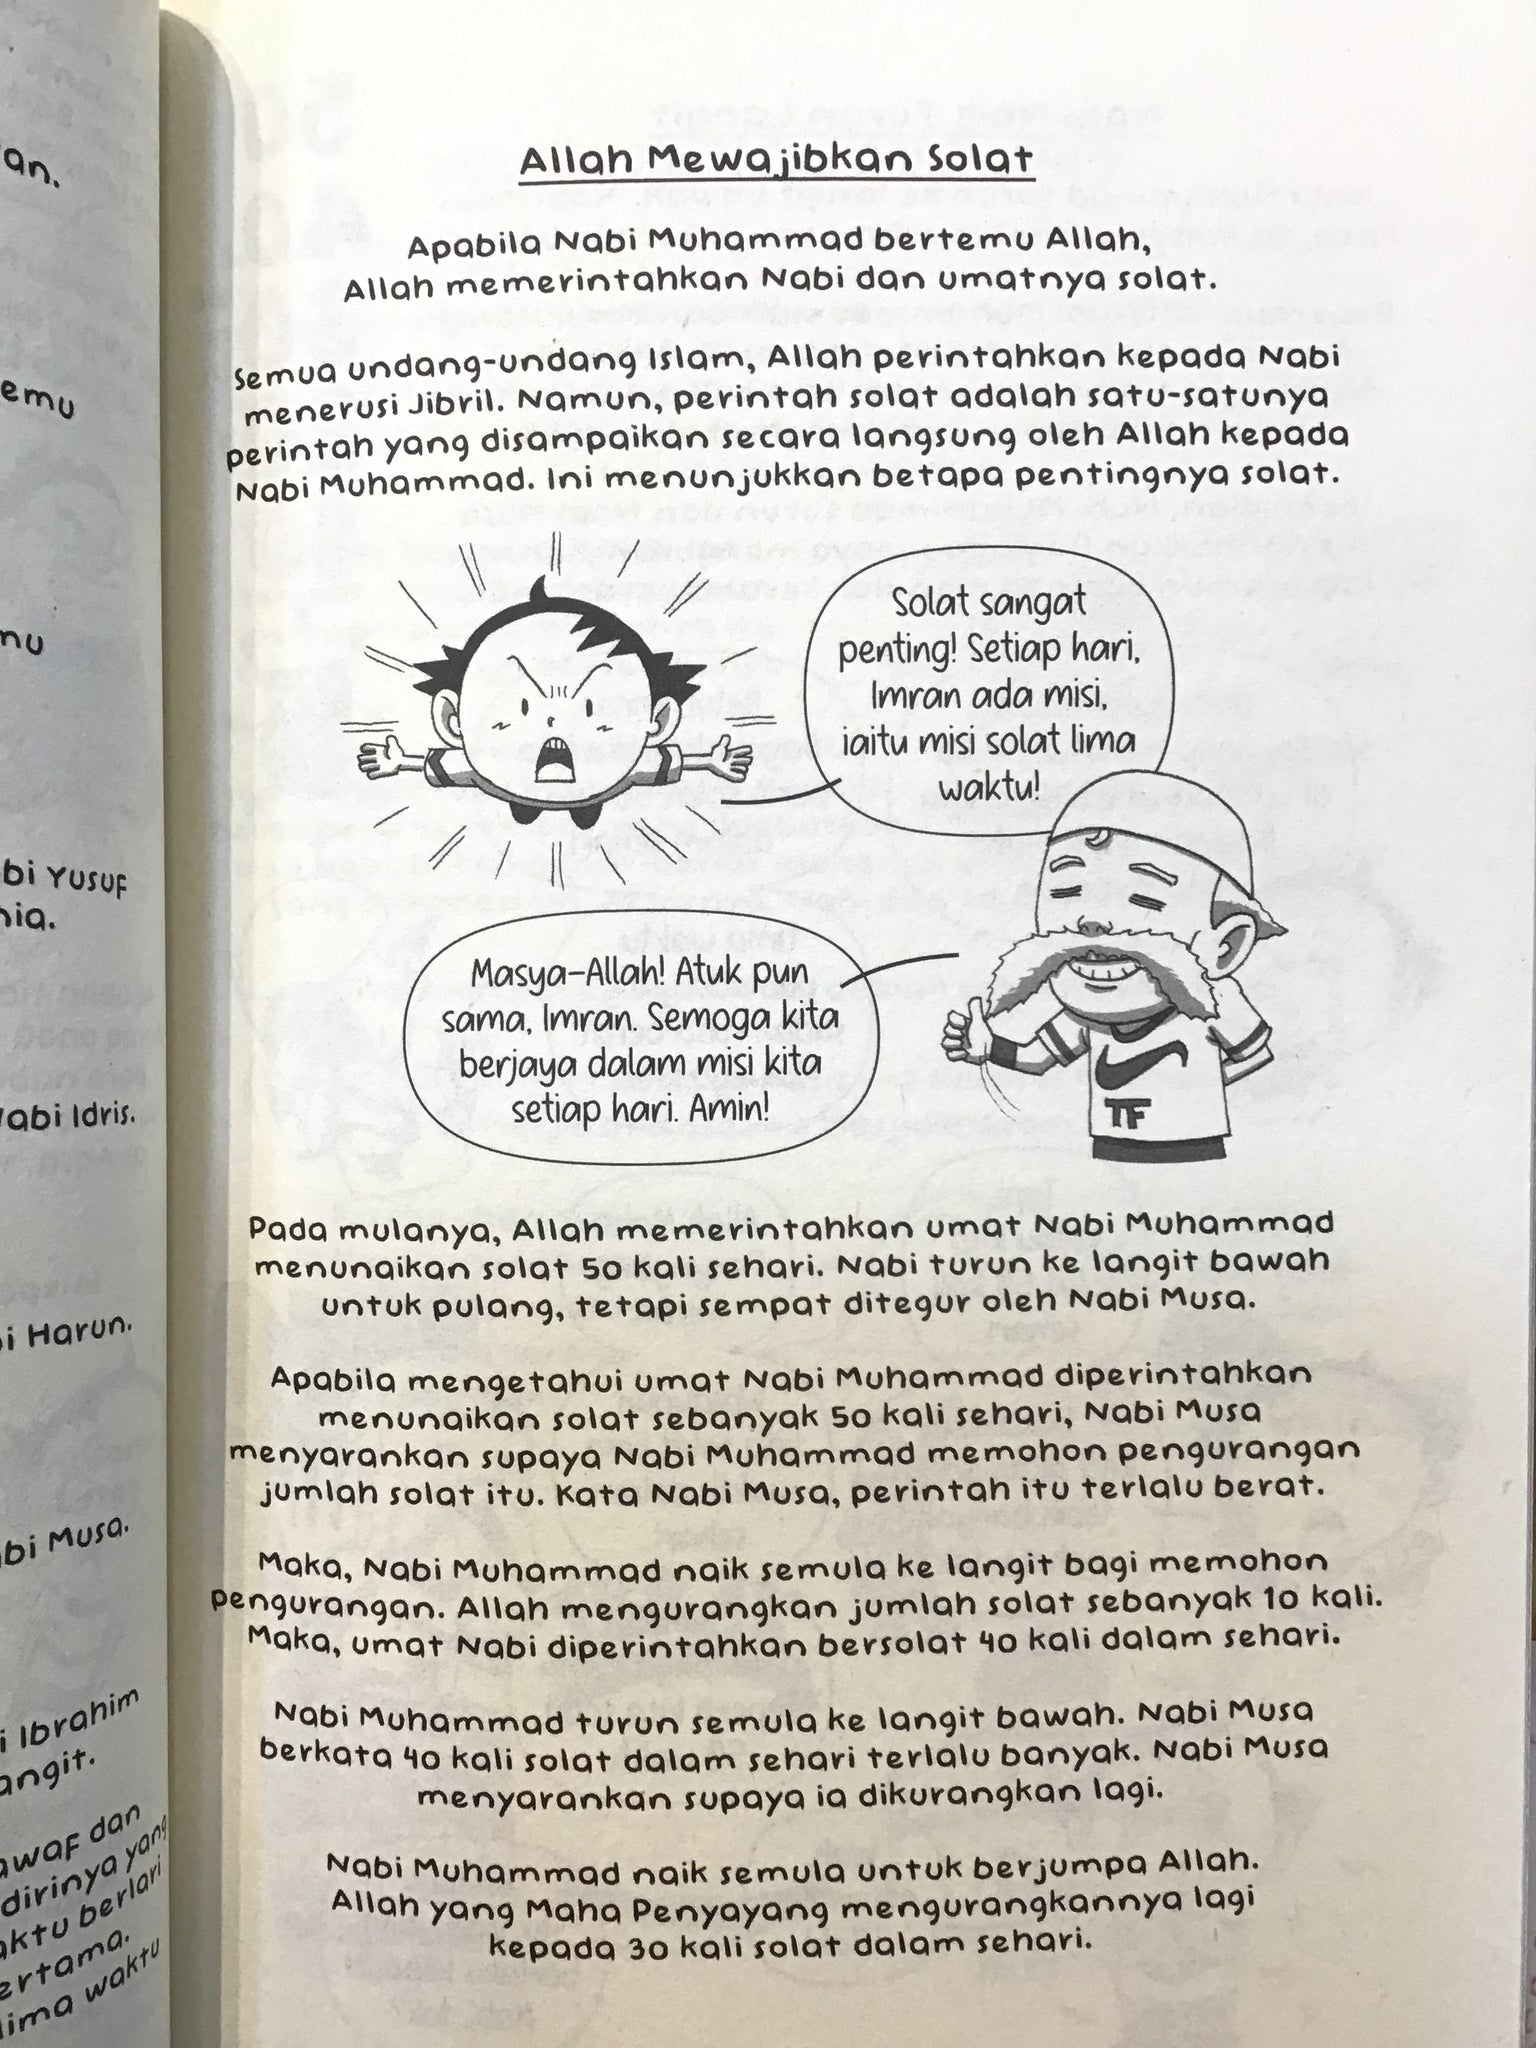 an.
emu
nu
bi Yusuf
nia.
abi Idris.
i Harun.
bi Musa.
i Ibrahim
angit.
awaf dan
dirinya yang
aktu berlari
ertama.
lima waktu
Allah Mewajibkan Solat
Apabila Nabi Muhammad bertemu Allah,
Allah memerintahkan Nabi dan umatnya solat.
Semua undang-undang Islam, Allah perintahkan kepada Nabi
menerusi Jibril. Namun, perintah solat adalah satu-satunya
perintah yang disampaikan secara langsung oleh Allah kepada
Nabi Muhammad. Ini menunjukkan betapa pentingnya solat.
Solat sangat
penting! Setiap hari,
Imran ada misi,
iaitu misi solat lima
waktu!
Masya-Allah! Atuk pun
sama, Imran. Semoga kita
berjaya dalam misi kita
setiap hari. Amin!
TF
Pada mulanya, Allah memerintahkan umat Nabi Muhammad
menunaikan solat 50 kali sehari. Nabi turun ke langit bawah
untuk pulang, tetapi sempat ditegur oleh Nabi Musa.
Apabila mengetahui umat Nabi Muhammad diperintahkan
menunaikan solat sebanyak 50 kali sehari, Nabi Musa
menyarankan supaya Nabi Muhammad memohon pengurangan
jumlah solat itu. Kata Nabi Musa, perintah itu terlalu berat.
Maka, Nabi Muhammad naik semula ke langit bagi memohon
pengurangan. Allah mengurangkan jumlah solat sebanyak 10 kali.
Maka, umat Nabi diperintahkan bersolat 40 kali dalam sehari.
Nabi Muhammad turun semula ke langit bawah. Nabi Musa
berkata 40 kali solat dalam sehari terlalu banyak. Nabi Musa
menyarankan supaya ia dikurangkan lagi.
Nabi Muhammad naik semula untuk berjumpa Allah.
Allah yang Maha Penyayang mengurangkannya lagi
kepada 30 kali solat dalam sehari.